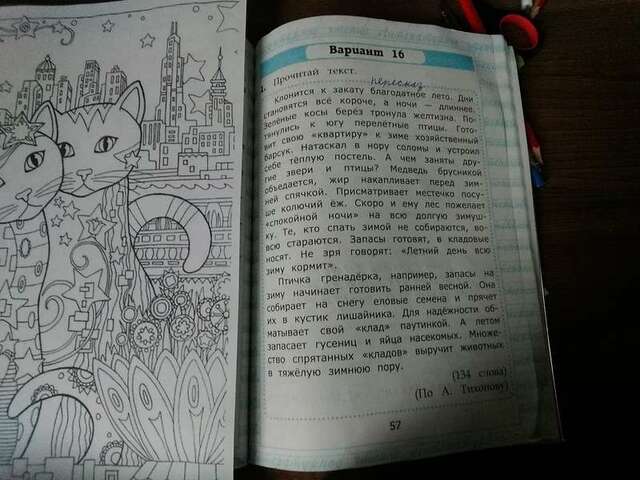 Вариант 16
1. Прочитай текст.
пересказ
Клонится к закату благодатное лето. Дни
становятся всё короче, а ночи — длиннее.
Зелёные косы берёз тронула желтизна. По-
тянулись к югу перелётные птицы. Гото-
вит свою «квартиру» к зиме хозяйственный
барсук. Натаскал в нору соломы и устроил
себе тёплую постель. А чем заняты дру-
гие звери и птицы? Медведь брусникой
объедается, жир накапливает перед зим-
ней спячкой. Присматривает местечко посу-
ше колючий ёж. Скоро и ему лес пожелает
«спокойной ночи» на всю долгую зимуш-
ку. Те, кто спать зимой не собираются, во-
всю стараются. Запасы готовят, в кладовые
носят. Не зря говорят: «Летний день всю
зиму кормит».
Птичка гренадёрка, например, запасы на
зиму начинает готовить ранней весной. Она
собирает на снегу еловые семена и прячет
их в кустик лишайника. Для надёжности об-
матывает свой «клад» паутинкой. А летом
запасает гусениц и яйца насекомых. Множе-
ство спрятанных «кладов» выручит животных
в тяжёлую зимнюю пору.
(134 слова)
(По А. Тихонову)
57